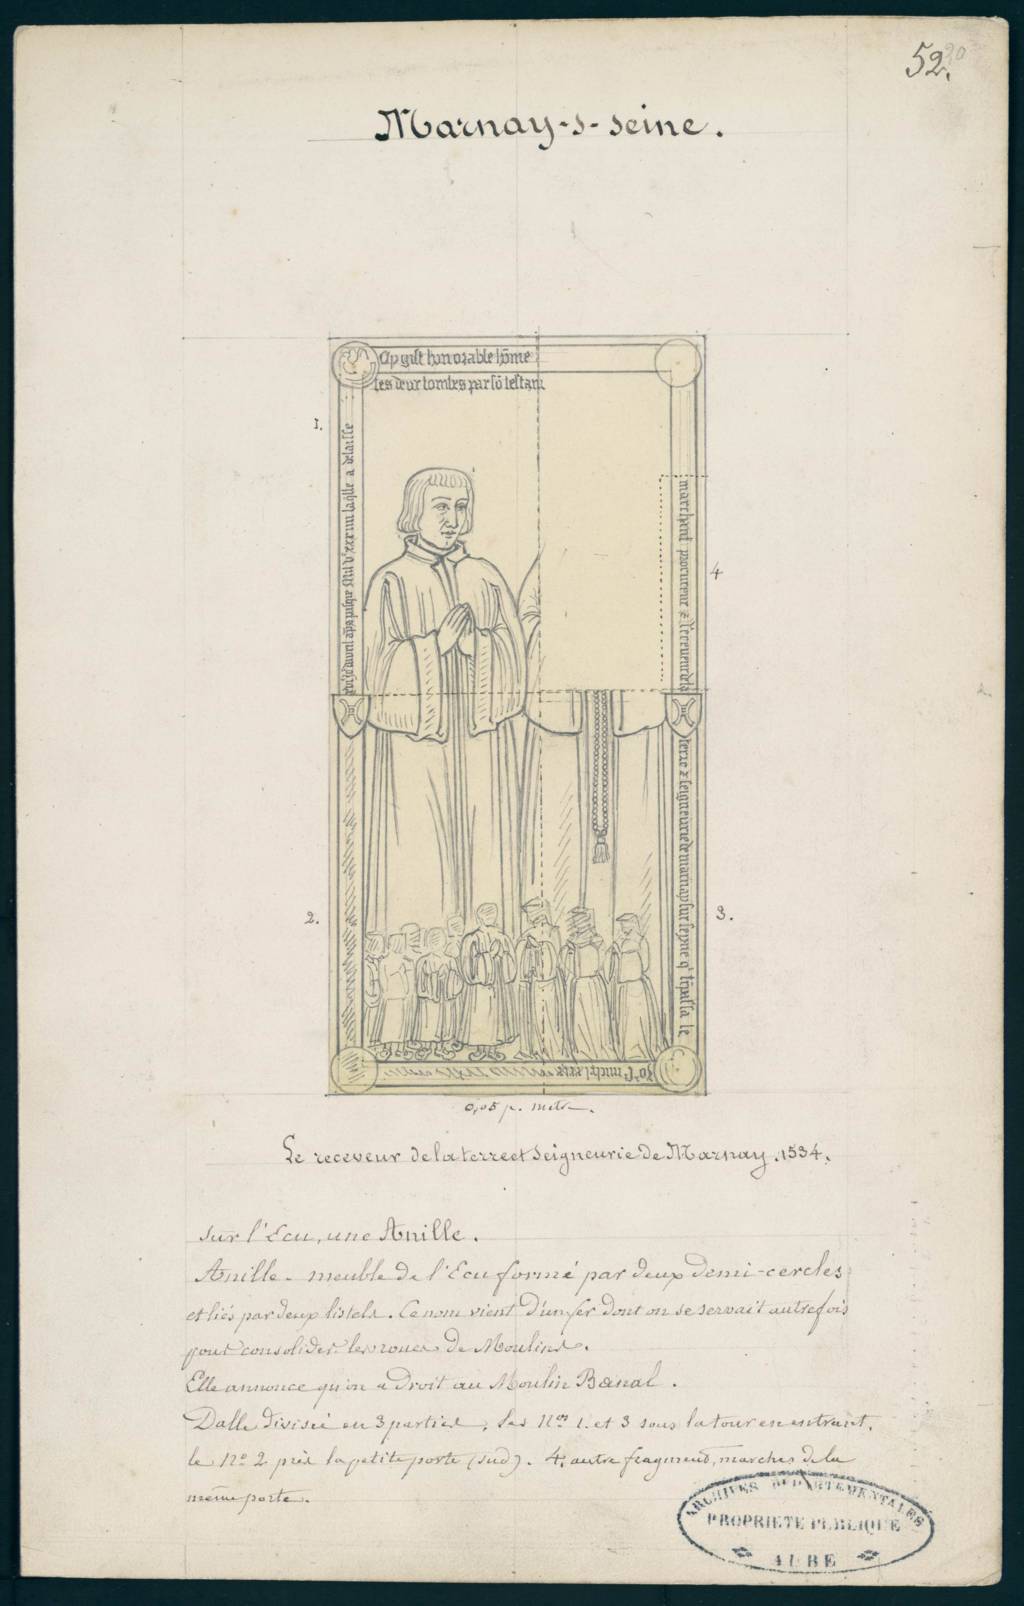 52.
Marnay-s-seine.
Cy gist honorable hõme
les deux tombes par sõ testam
1.
marchant procureur & Receveur de la
4
terre & seigneurie de marnay sur seyne q' trépassa le
2.
3.
0,05 p. metre.
Le receveur de la terre et Seigneurie de Marnay. 1534.
Sur l'Ecu, une Anille.
Anille. meuble de l'Ecu formé par deux demi-cercles
et liés par deux listels. Ce nom vient d'un fer dont on se servait autrefois
pour consolider les roues de Moulins.
Elle annonce qu'on a Droit au Moulin Banal.
Dalle divisée en 3 parties, les Nos 1. et 3 sous la tour en entrant,
le No 2 près la petite porte (sud). 4. autre fragment, marches de la
même porte.
ARCHIVES DEPARTEMENTALES
PROPRIETE PUBLIQUE
AUBE